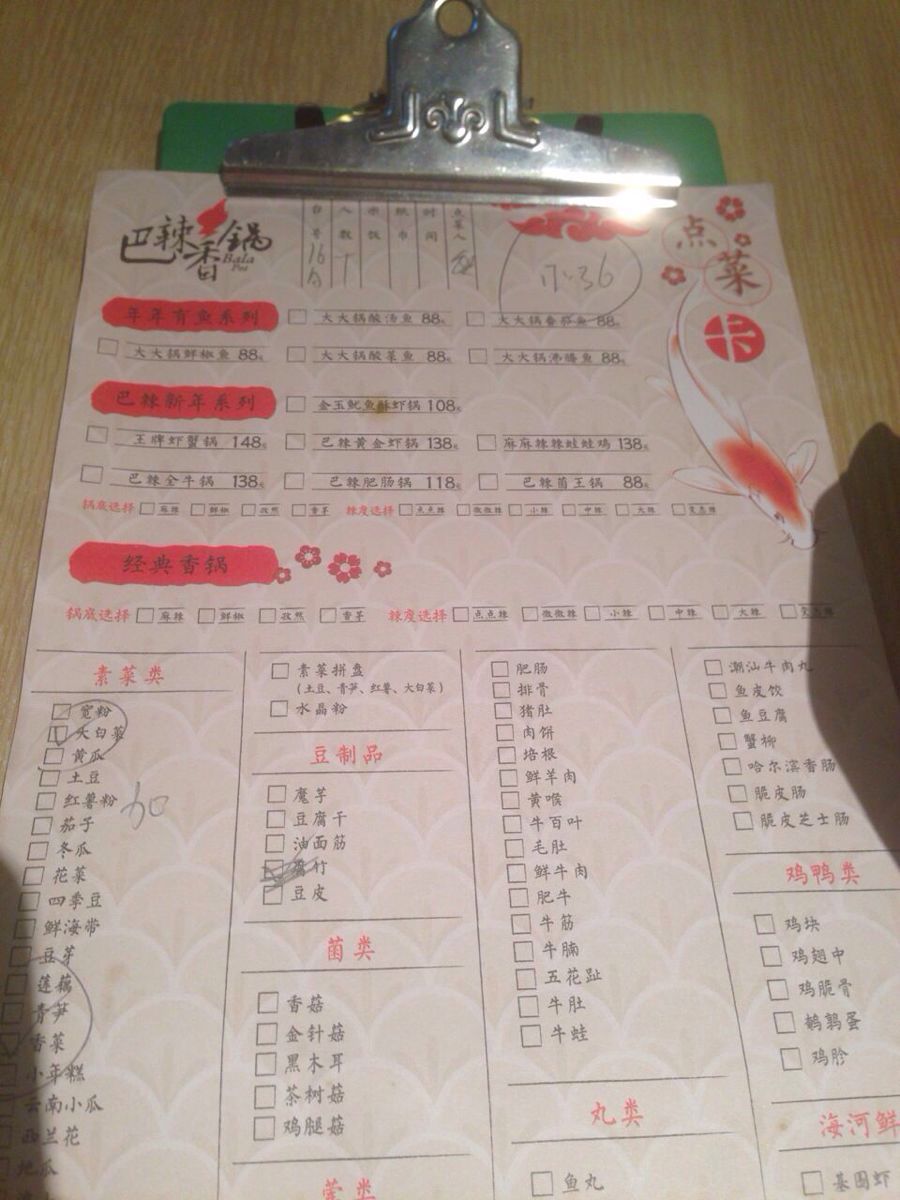 巴辣香锅
Bala Pot
台号 人数 米饭 纸巾 时间 点菜人
16台
17:36
点菜
年年有鱼系列
大大锅酸汤鱼 88元
大大锅番茄鱼 88元
大大锅鲜椒鱼 88元
大大锅酸菜鱼 88元
大大锅沸腾鱼 88元
巴辣新年系列
金玉鱿鱼酥虾锅 108元
王牌虾蟹锅 148元
巴辣黄金虾锅 138元
麻麻辣辣蛙蛙鸡 138元
巴辣全牛锅 138元
巴辣肥肠锅 118元
巴辣菌王锅 88元
锅底选择 麻辣 鲜椒 孜然 香茅 辣度选择 点点辣 微微辣 小辣 中辣 大辣 变态辣
经典香锅
锅底选择 麻辣 鲜椒 孜然 香茅 辣度选择 点点辣 微微辣 小辣 中辣 大辣 变态辣
素菜类
宽粉
大白菜
黄瓜
土豆
红薯粉
加
茄子
冬瓜
花菜
四季豆
鲜海带
豆芽
莲藕
青笋
香菜
小年糕
云南小瓜
西兰花
地瓜
素菜拼盘
(土豆、青笋、红薯、大白菜)
水晶粉
豆制品
魔芋
豆腐干
油面筋
腐竹
豆皮
菌类
香菇
金针菇
黑木耳
茶树菇
鸡腿菇
肥肠
排骨
猪肚
肉饼
培根
鲜羊肉
黄喉
牛百叶
毛肚
鲜牛肉
肥牛
牛筋
牛腩
五花趾
牛肚
牛蛙
丸类
鱼丸
潮汕牛肉丸
鱼皮饺
鱼豆腐
蟹柳
哈尔滨香肠
脆皮肠
脆皮芝士肠
鸡鸭类
鸡块
鸡翅中
鸡脆骨
鹌鹑蛋
鸡胗
海河鲜
基围虾